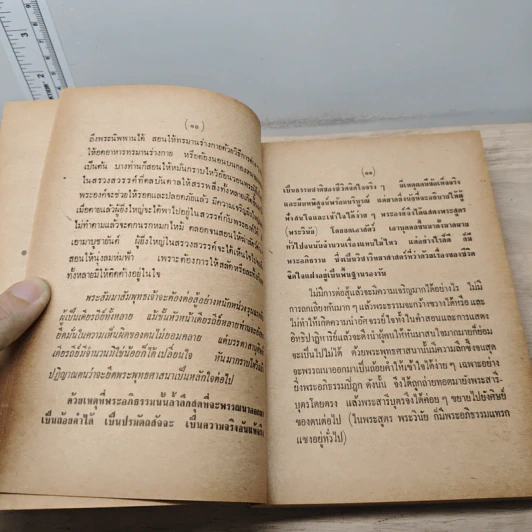 (๑๐)
ถึงพระนิพพานได้ สอนให้ทรมานร่างกายด้วยวิธีการต่าง
ให้อดอาหารทรมานร่างกาย หรือต้องนอนบน
เป็นต้น บางท่านก็สอนให้หมั่นกราบไหว้อ้อนวอนพระ
ในสรวงสวรรค์ที่ดลบันดาลให้สรรพสิ่งทั้งหลายเกิดขึ้น
พระองค์จะช่วยให้รอดและปลอดภัยแล้ว มีความ
เมื่อตายแล้วผู้ยิ่งใหญ่จะได้พาไปอยู่ในสวรรค์กับพระองค์
ไม่ทำตามแล้วจะตกนรกหมกไหม้ ตลอดจนสอนให้
เอามาบูชายัญต์ ผู้ยิ่งใหญ่ในสรวงสวรรค์จะได้เห็นใจ
สอนให้งมงมห้าคำ เพราะต้องการให้สลัดหรือละ
ทั้งหลายมีให้คิดค้างอยู่ในใจ
พระสัมมาสัมพุทธเจ้าจะต้องต่อสู้อย่างหนักหน่วงรุนแรง
ผู้เป็นเดียรถีย์ทั้งหลาย แม้ขั้นหัวหน้าเดียรถีย์หลายท่าน
ยึดมั่นในความเห็นผิดของตนไม่ยอมคลาย แต่บรรดา
เดียรถีย์มีจำนวนมิใช่น้อยก็ได้เปลี่ยนใจ หันมากราบไหว้
ปฏิญาณตนว่าจะยึดพระพุทธศาสนาเป็นหลักใจต่อไป
ด้วยเหตุที่พระอภิธรรมนั้นล้ำลึกสุดที่จะพรรณนา
เป็นถ้อยคำได้ เป็นปรมัตถสัจจะ เป็นความจริงอัน
(๑๑)
เป็นธรรมชาติของชีวิตจิตใจจริง ๆ มีเหตุผลข้อเท็จจริง
และมีบทพิสูจน์พร้อมบริบูรณ์ แต่ยากยิ่งนักที่จะอธิบายให้ผู้
ฟังสนใจและเข้าใจได้ง่าย ๆ พระองค์จึงได้แสดงพระสูตร
(พระวินัย) โดยยกเอาสัตว์ เอาบุคคลขึ้นมาตั้งมากมาย
ทั่วไปจนนับจำนวนเรื่องแทบไม่ไหว แต่อย่างไรก็ดี อัน
พระอภิธรรม ซึ่งเป็นวิทยาศาสตร์ที่ว่าด้วยเรื่องของชีวิต
จิตใจแฝงอยู่เป็นพื้นฐานรองรับ
ไม่มีการต่อสู้แล้วจะมีความเจริญมากได้อย่างไร ไม่มี
การถกเถียงกันมาก ๆ แล้วพระธรรมจะกว้างขวางได้หรือ และ
ไม่ทำให้เกิดความน่าอัศจรรย์ใจทั้งในคำสอนและการแสดง
อิทธิปาฏิหารย์แล้วจะดึงนำผู้คนให้หันมาสนใจมากมายก็ย่อม
จะเป็นไปไม่ได้ ด้วยพระพุทธศาสนานั้นมีความลึกซึ้งจนสุด
จะพรรณนาออกมาเป็นถ้อยคำให้เข้าใจได้ง่าย ๆ เฉพาะอย่าง
ยิ่งพระอภิธรรมปิฎก ดังนั้น จึงได้ถูกถ่ายทอดมายังพระสารี-
บุตรโดยตรง แล้วพระสารีบุตรจึงได้ค่อย ๆ ขยายไปยังศิษย์
ของตนต่อไป (ในพระสูตร พระวินัย ก็มีพระอภิธรรมแทรก
แซงอยู่ทั่วไป)